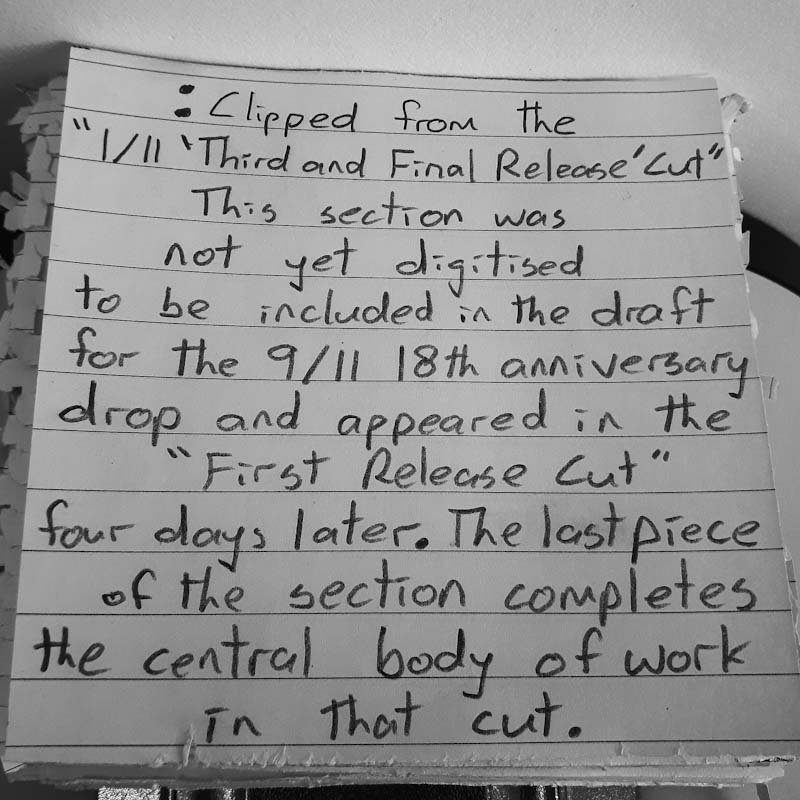 : Clipped from the
"1/11 'Third and Final Release' Cut"
This section was
not yet digitised
to be included in the draft
for the 9/11 18th anniversary
drop and appeared in the
"First Release Cut"
four days later. The last piece
of the section completes
the central body of work
in that cut.